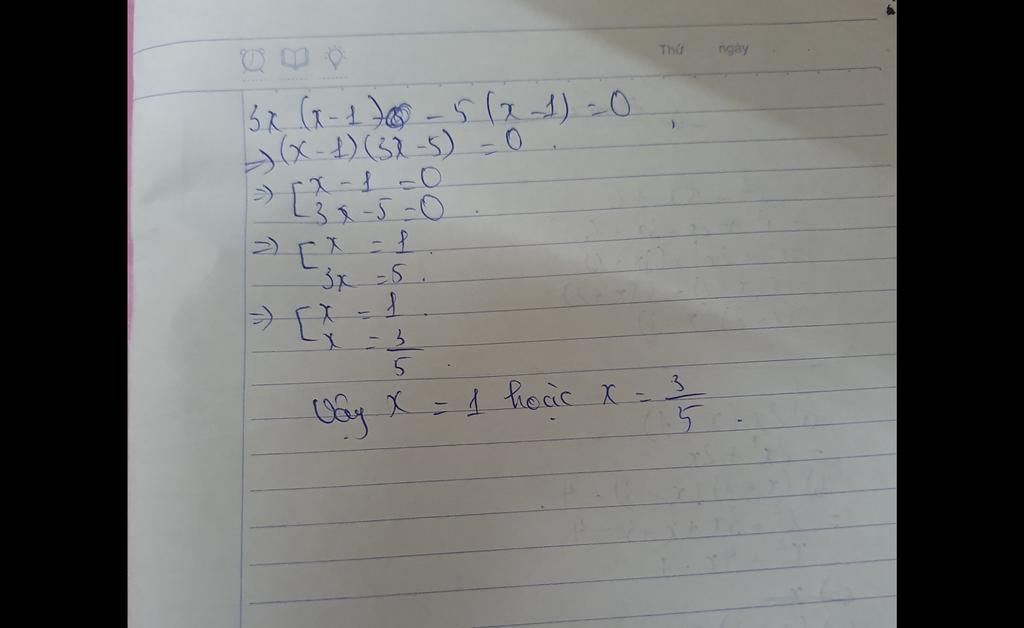 Thứ ngày
3x (x-1) - 5 (x-1) = 0
=> (x-1)(3x-5) = 0.
=> [ x - 1 = 0
3x - 5 = 0.
=> [ x = 1.
3x = 5.
=> [ x = 1.
x = 3/5.
Vậy x = 1 hoặc x = 3/5.